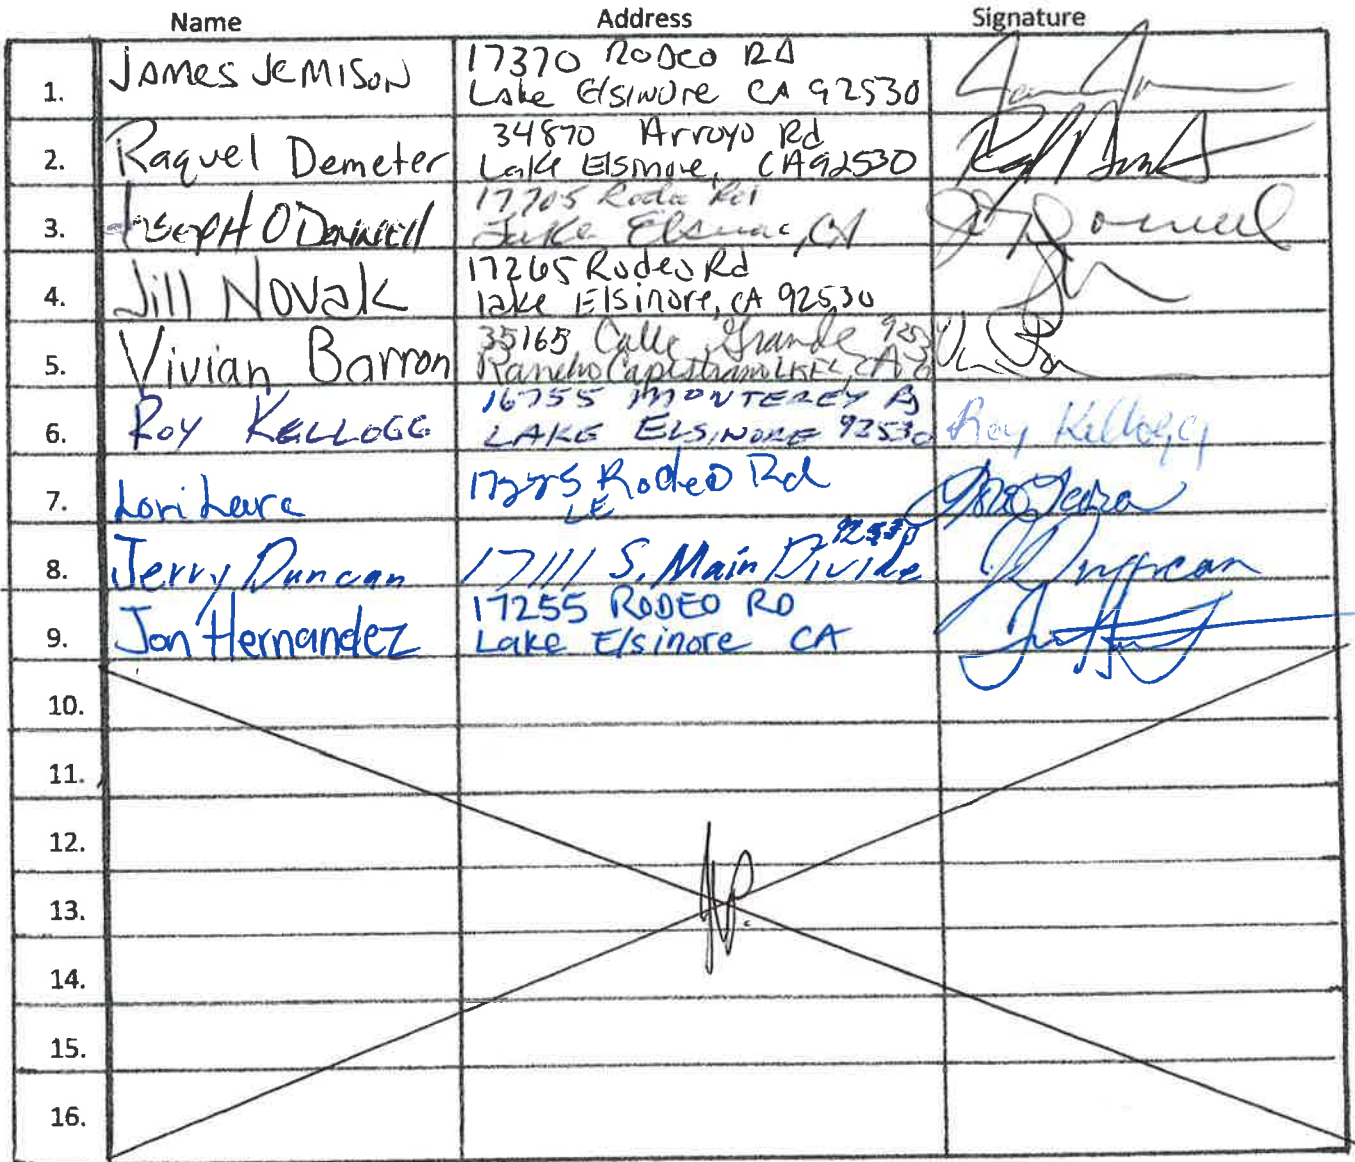 Name Address Signature
1. JAMES JEMISON 17370 RODEO RD
Lake Elsinore CA 92530
2. Raquel Demeter 34870 Arroyo Rd
Lake Elsinore, CA 92530
3. JOSEPH O'DONNELL 17705 Rodeo Rd
Lake Elsinore, CA
4. Jill Novak 17265 Rodeo Rd
lake Elsinore, CA 92530
5. Vivian Barron 35165 Calle Grande
Rancho Capistrano CA
6. ROY KELLOGG 16755 MONTEREY Roy Kellogg
LAKE ELSINORE 92530
7. Lori Rodeo Rd
LE
8. Jerry Duncan 17111 S. Main Divide 92530
9. Jon Hernandez 17255 RODEO RD
Lake Elsinore CA
10.
11.
12.
13.
14.
15.
16.